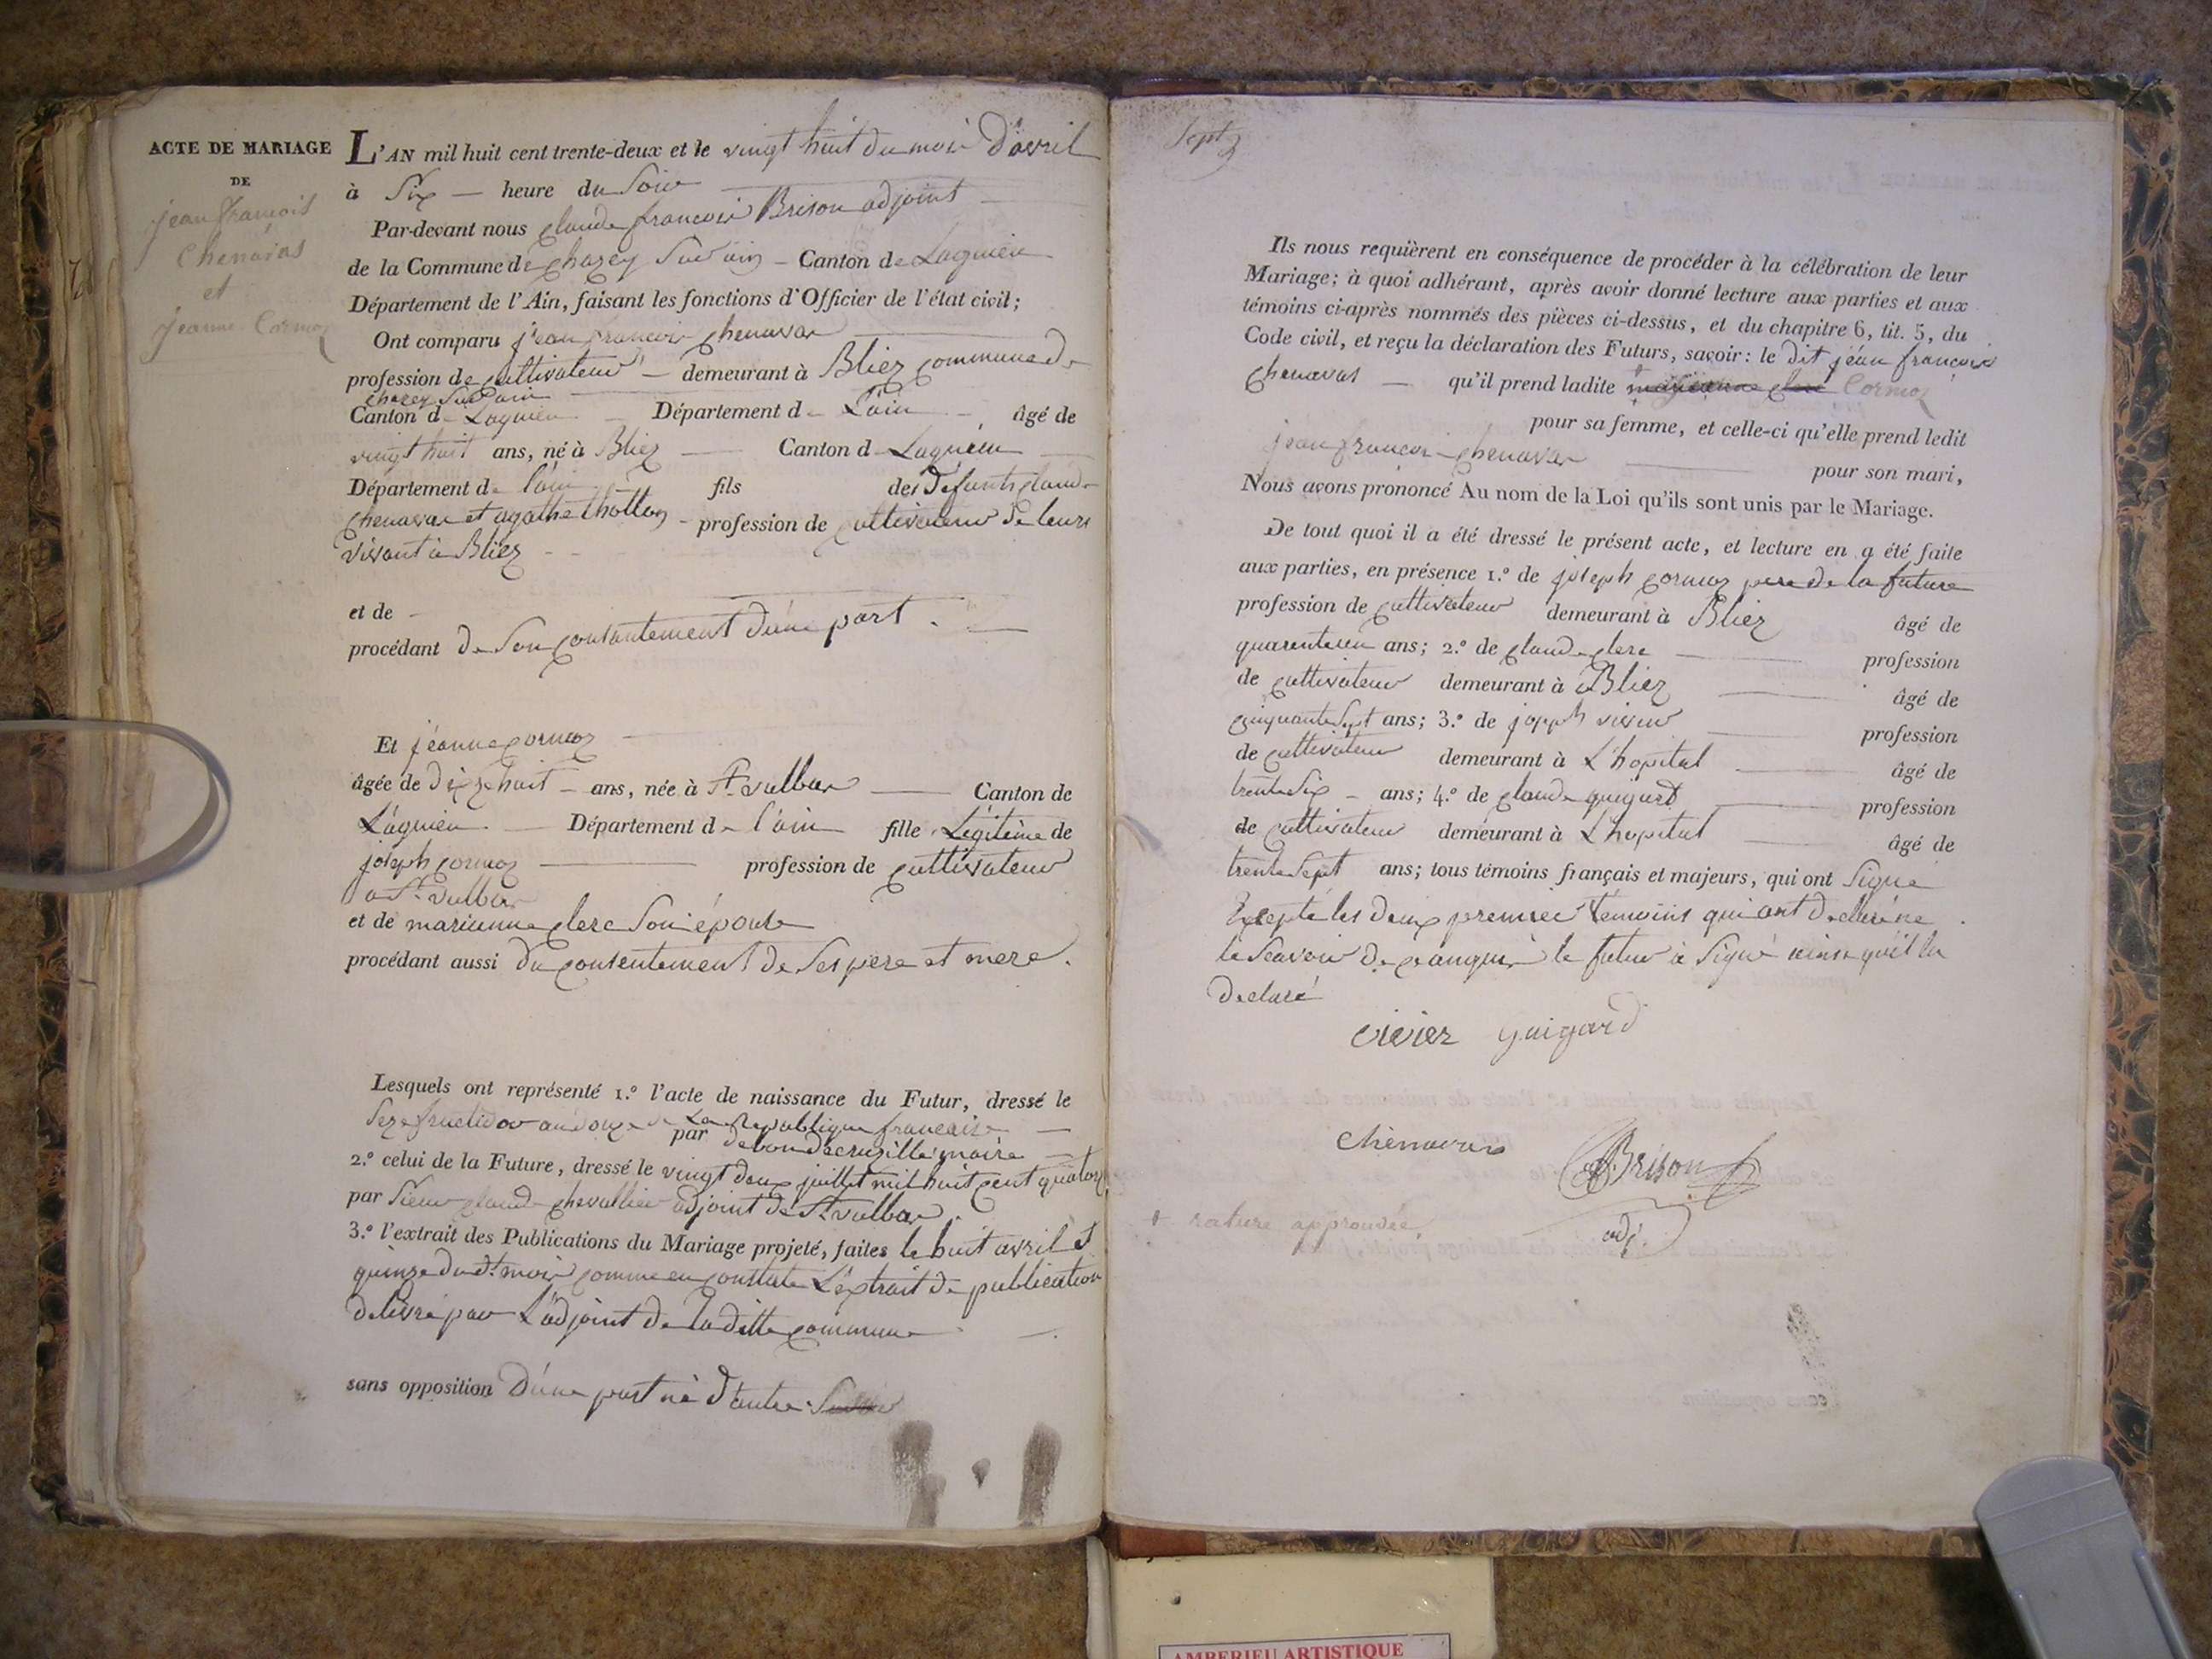 ACTE DE MARIAGE
DE
jean francois
Chenavas
et
jeanne Cormoz
L'AN mil huit cent trente-deux et le vingt huit du mois d'avril
à Six — heure du Soir
Par-devant nous claude francois Brison adjoint
de la Commune de chazey Sur ain - Canton de Lagnieu
Département de l'Ain, faisant les fonctions d'Officier de l'état civil;
Ont comparu jean francois chenavas
profession de cultivateur — demeurant à Bliez commune de
chazey Sur ain
Canton de Lagnieu — Département de L'ain — âgé de
vingt huit ans, né à Bliez — Canton de Lagnieu
Département de l'ain — fils des défunts claude
chenavas et agathe thollon - profession de cultivateur de leurs
vivant à Bliez
et de -
procédant de Son consantement d'une part.
Et jeanne cormoz
âgée de dix huit - ans, née à St vulbas — Canton de
Lagnieu — Département de l'ain fille Légitime de
joseph cormoz — profession de cultivateur
a St vulbas
et de marianne clerc Son épouse
procédant aussi du consentement de Ses pere et mere.
Lesquels ont représenté 1.º l'acte de naissance du Futur, dressé le
Seze fructidor an douze de La Republique francaise
par debon décruzille maire
2.º celui de la Future, dressé le vingt deux juillet mil huit cent quatorze
par Sieur claude chevallier adjoint de St vulbas.
3.º l'extrait des Publications du Mariage projeté, faites le huit avril &
quinze du dt mois comme en constate L'extrait de publication
délivré par L'adjoint de la ditte commune
sans opposition D'une part ni d'autre.
Sept
Ils nous requièrent en conséquence de procéder à la célébration de leur
Mariage; à quoi adhérant, après avoir donné lecture aux parties et aux
témoins ci-après nommés des pièces ci-dessus, et du chapitre 6, tit. 5, du
Code civil, et reçu la déclaration des Futurs, savoir: le dit jéan francois
chenavas — qu'il prend ladite marianne clerc Cormoz
pour sa femme, et celle-ci qu'elle prend ledit
jean francois chenavas — pour son mari,
Nous avons prononcé Au nom de la Loi qu'ils sont unis par le Mariage.
De tout quoi il a été dressé le présent acte, et lecture en a été faite
aux parties, en présence 1.º de joseph cormoz pere de la future
profession de cultivateur demeurant à Bliez âgé de
quarente un ans; 2.º de claude clerc — profession
de cultivateur demeurant à Bliez — âgé de
cinquante Sept ans; 3.º de joseph vivier — profession
de cultivateur demeurant à L'hopital — âgé de
trente Six - ans; 4.º de claude guigard — profession
de cultivateur demeurant à L'hopital — âgé de
trente Sept ans; tous témoins français et majeurs, qui ont Signe
Excepté les deux premier témoins qui ont déclaré ne
le Scavoir de ce anquis le futur à Signé ainsi qu'il la
declaré
vivier guigard
chenavas
Brison
adj.
+ rature approuvée
AMBERIEU ARTISTIQUE